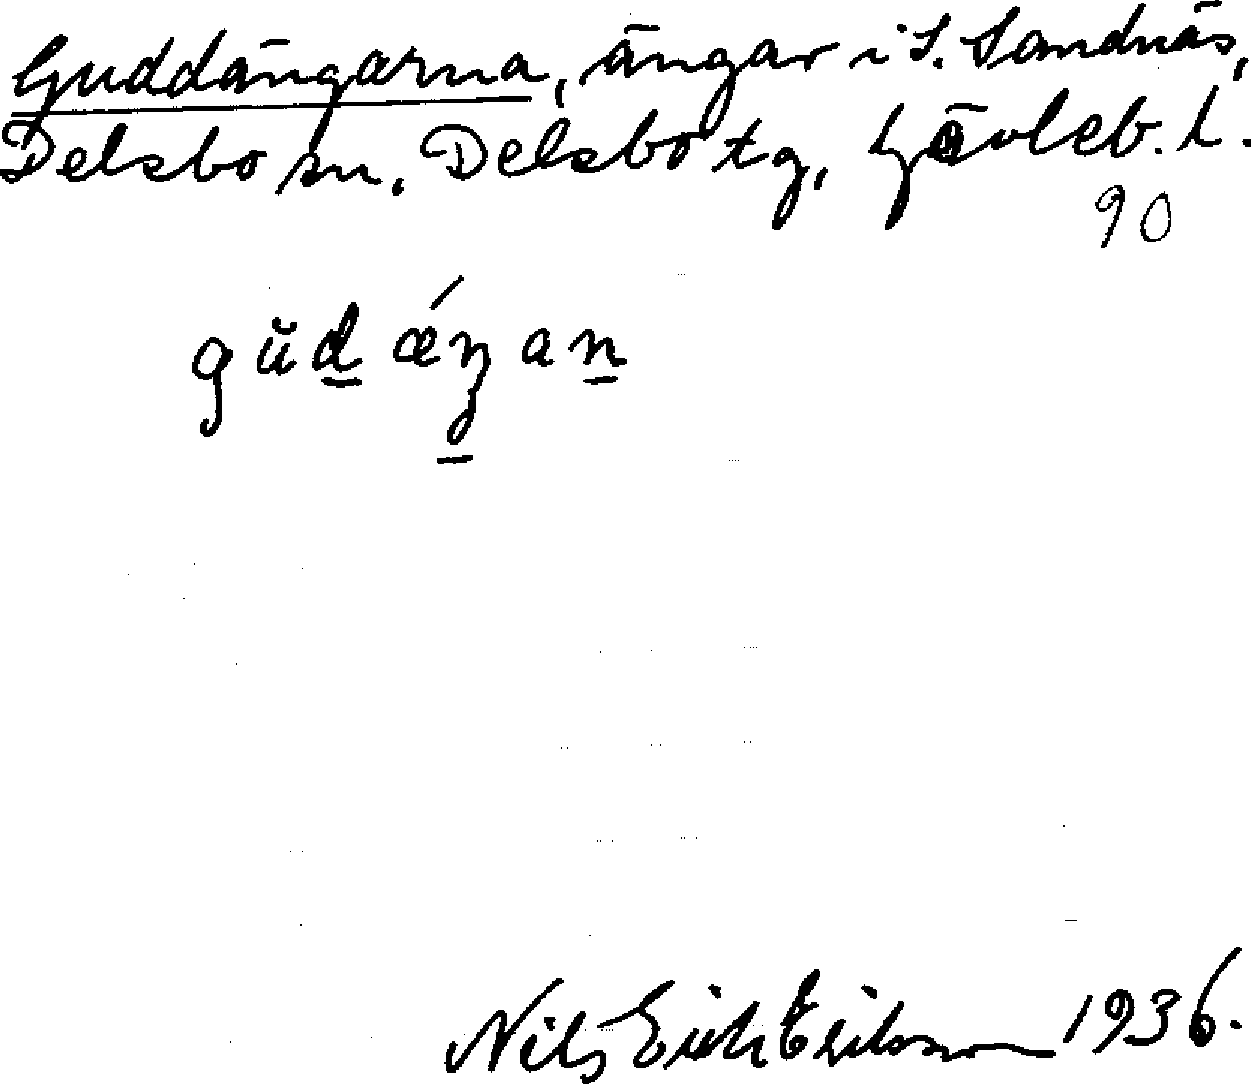 Guddängarna, ängar i S. Sandnäs,
Delsbo sn. Delsbo tg, Gävleb. L.
90
gŭd ǽŋ an
Nils Erik Eriksson 1936.